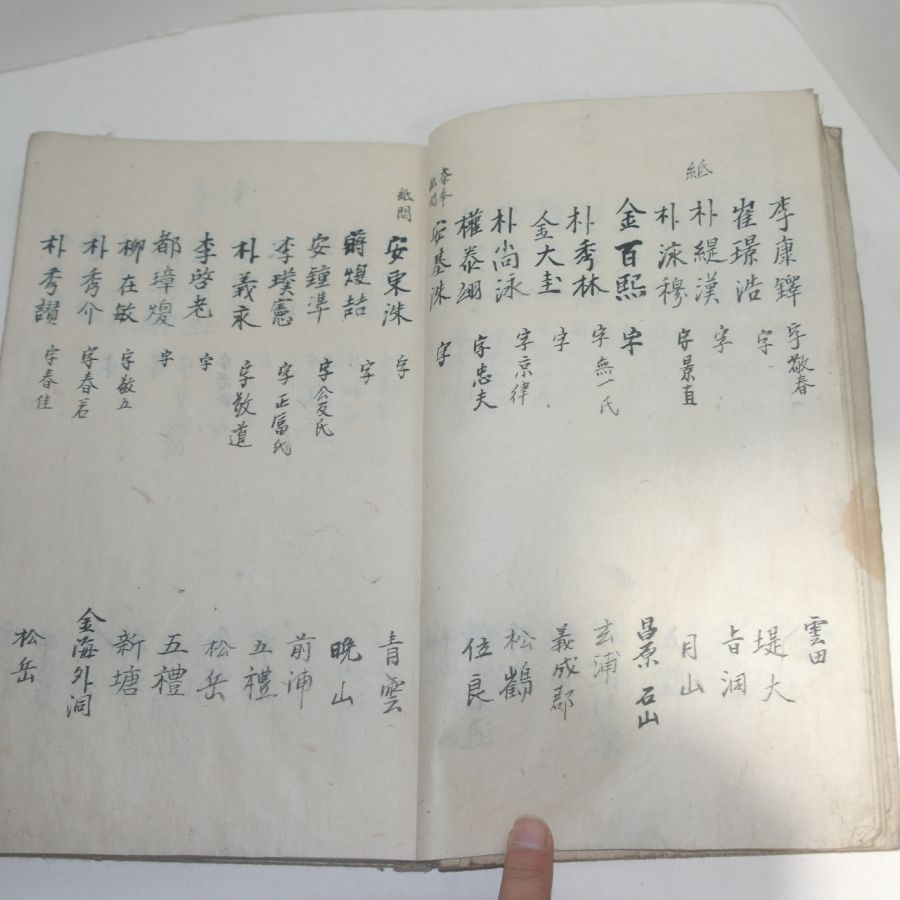 李康鐸 字敬春 雲田
崔璟浩 字 堤大
紙
朴緹漢 字 旨洞
朴泳穆 字景直 月山
金百熙 字 昌原 石山
朴秀林 字無一氏 玄浦
金大圭 字 義成郡
朴尚泳 字京律 松鶴
權泰翊 字忠夫 位良
安基洙 字
紙問
安東洙 字 青雲
蔣煥喆 字 晩山
安鐘準 字公爰氏 前浦
李璞憲 字正富氏 五禮
朴義來 字敬道 松岳
李啓老 字 五禮
都璋煥 字 新塘
柳在敏 字敬五
朴秀介 字春若 金海外洞
朴秀讃 字春佳 松岳